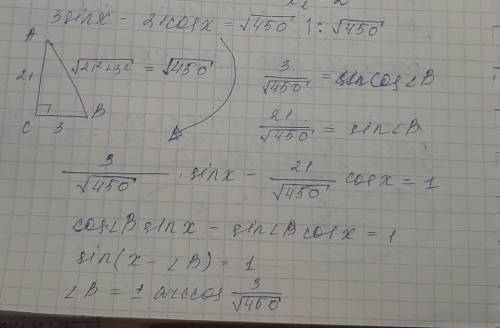 3sinx - 21cosx = √450 | : √450
A
21
√21²+3² = √450
C 3 B
3/√450 = cos∠B
21/√450 = sin∠B
3/√450 · sinx - 21/√450 cosx = 1
cos∠B sinx - sin∠B cosx = 1
sin(x - ∠B) = 1
∠B = ± arccos 3/√450